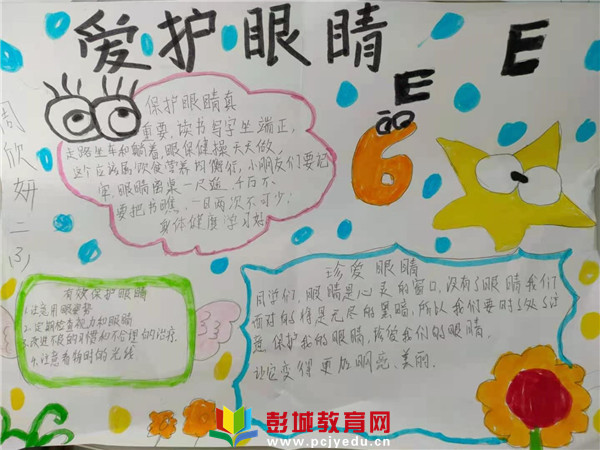 爱护眼睛
E
E
6
周欣妍二(3)
保护眼睛真
重要,读书写字坐端正,
走路坐车和躺着,眼保健操天天做,
营养均衡
小朋友们要记
牢,眼睛离桌一尺远,千万不
要把书瞧,一日两次不可少,
身体健康学习好
有效保护眼睛
1.注意用眼姿势
2.定期检查视力和眼睛
3.改进不良的习惯和不合理的治疗.
4.注意看物时的光线
珍爱眼睛
同学们,眼睛是心灵的窗口,没有了眼睛我们
面对的将是无尽的黑暗,所以我们要时时处处注
意保护我的眼睛,珍爱我们的眼睛.
让它变得更加明亮、美丽.
彭城教育网
www.pcjyedu.cn